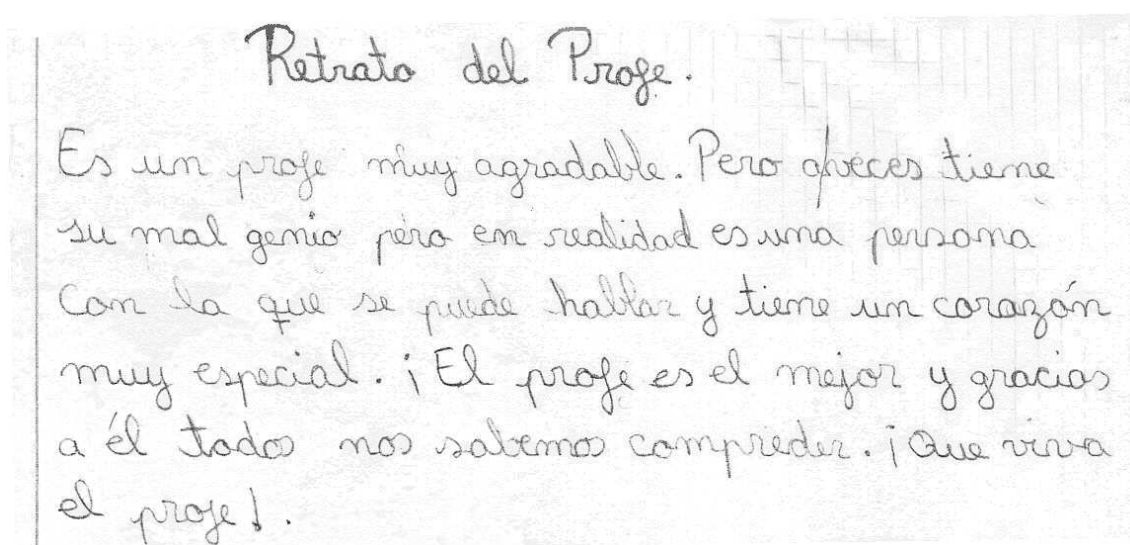 Retrato del Profe.
Es un profe muy agradable. Pero aveces tiene
su mal genio pero en realidad es una persona
con la que se puede hablar y tiene un corazón
muy especial. ¡El profe es el mejor y gracias
a él todos nos sabemos compreder. ¡Que viva
el profe!.